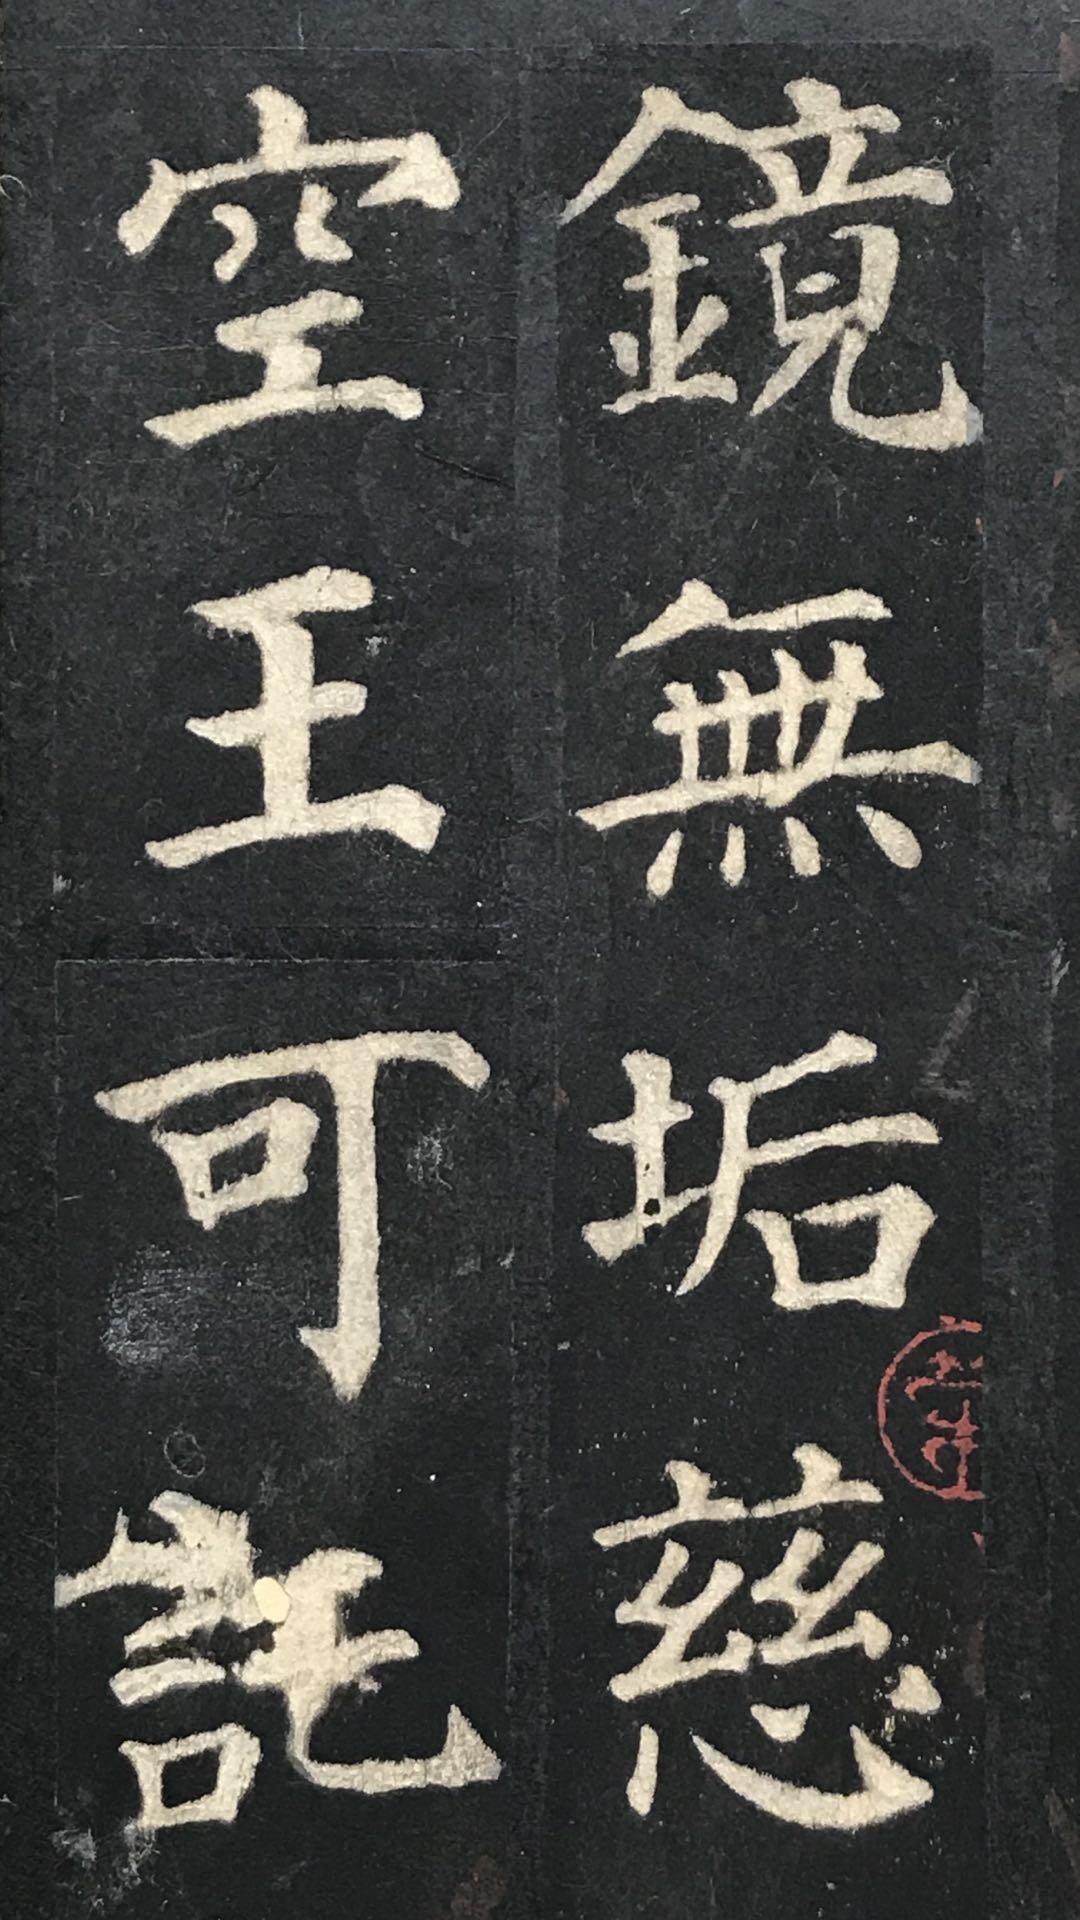 鏡無垢慈
空王可託